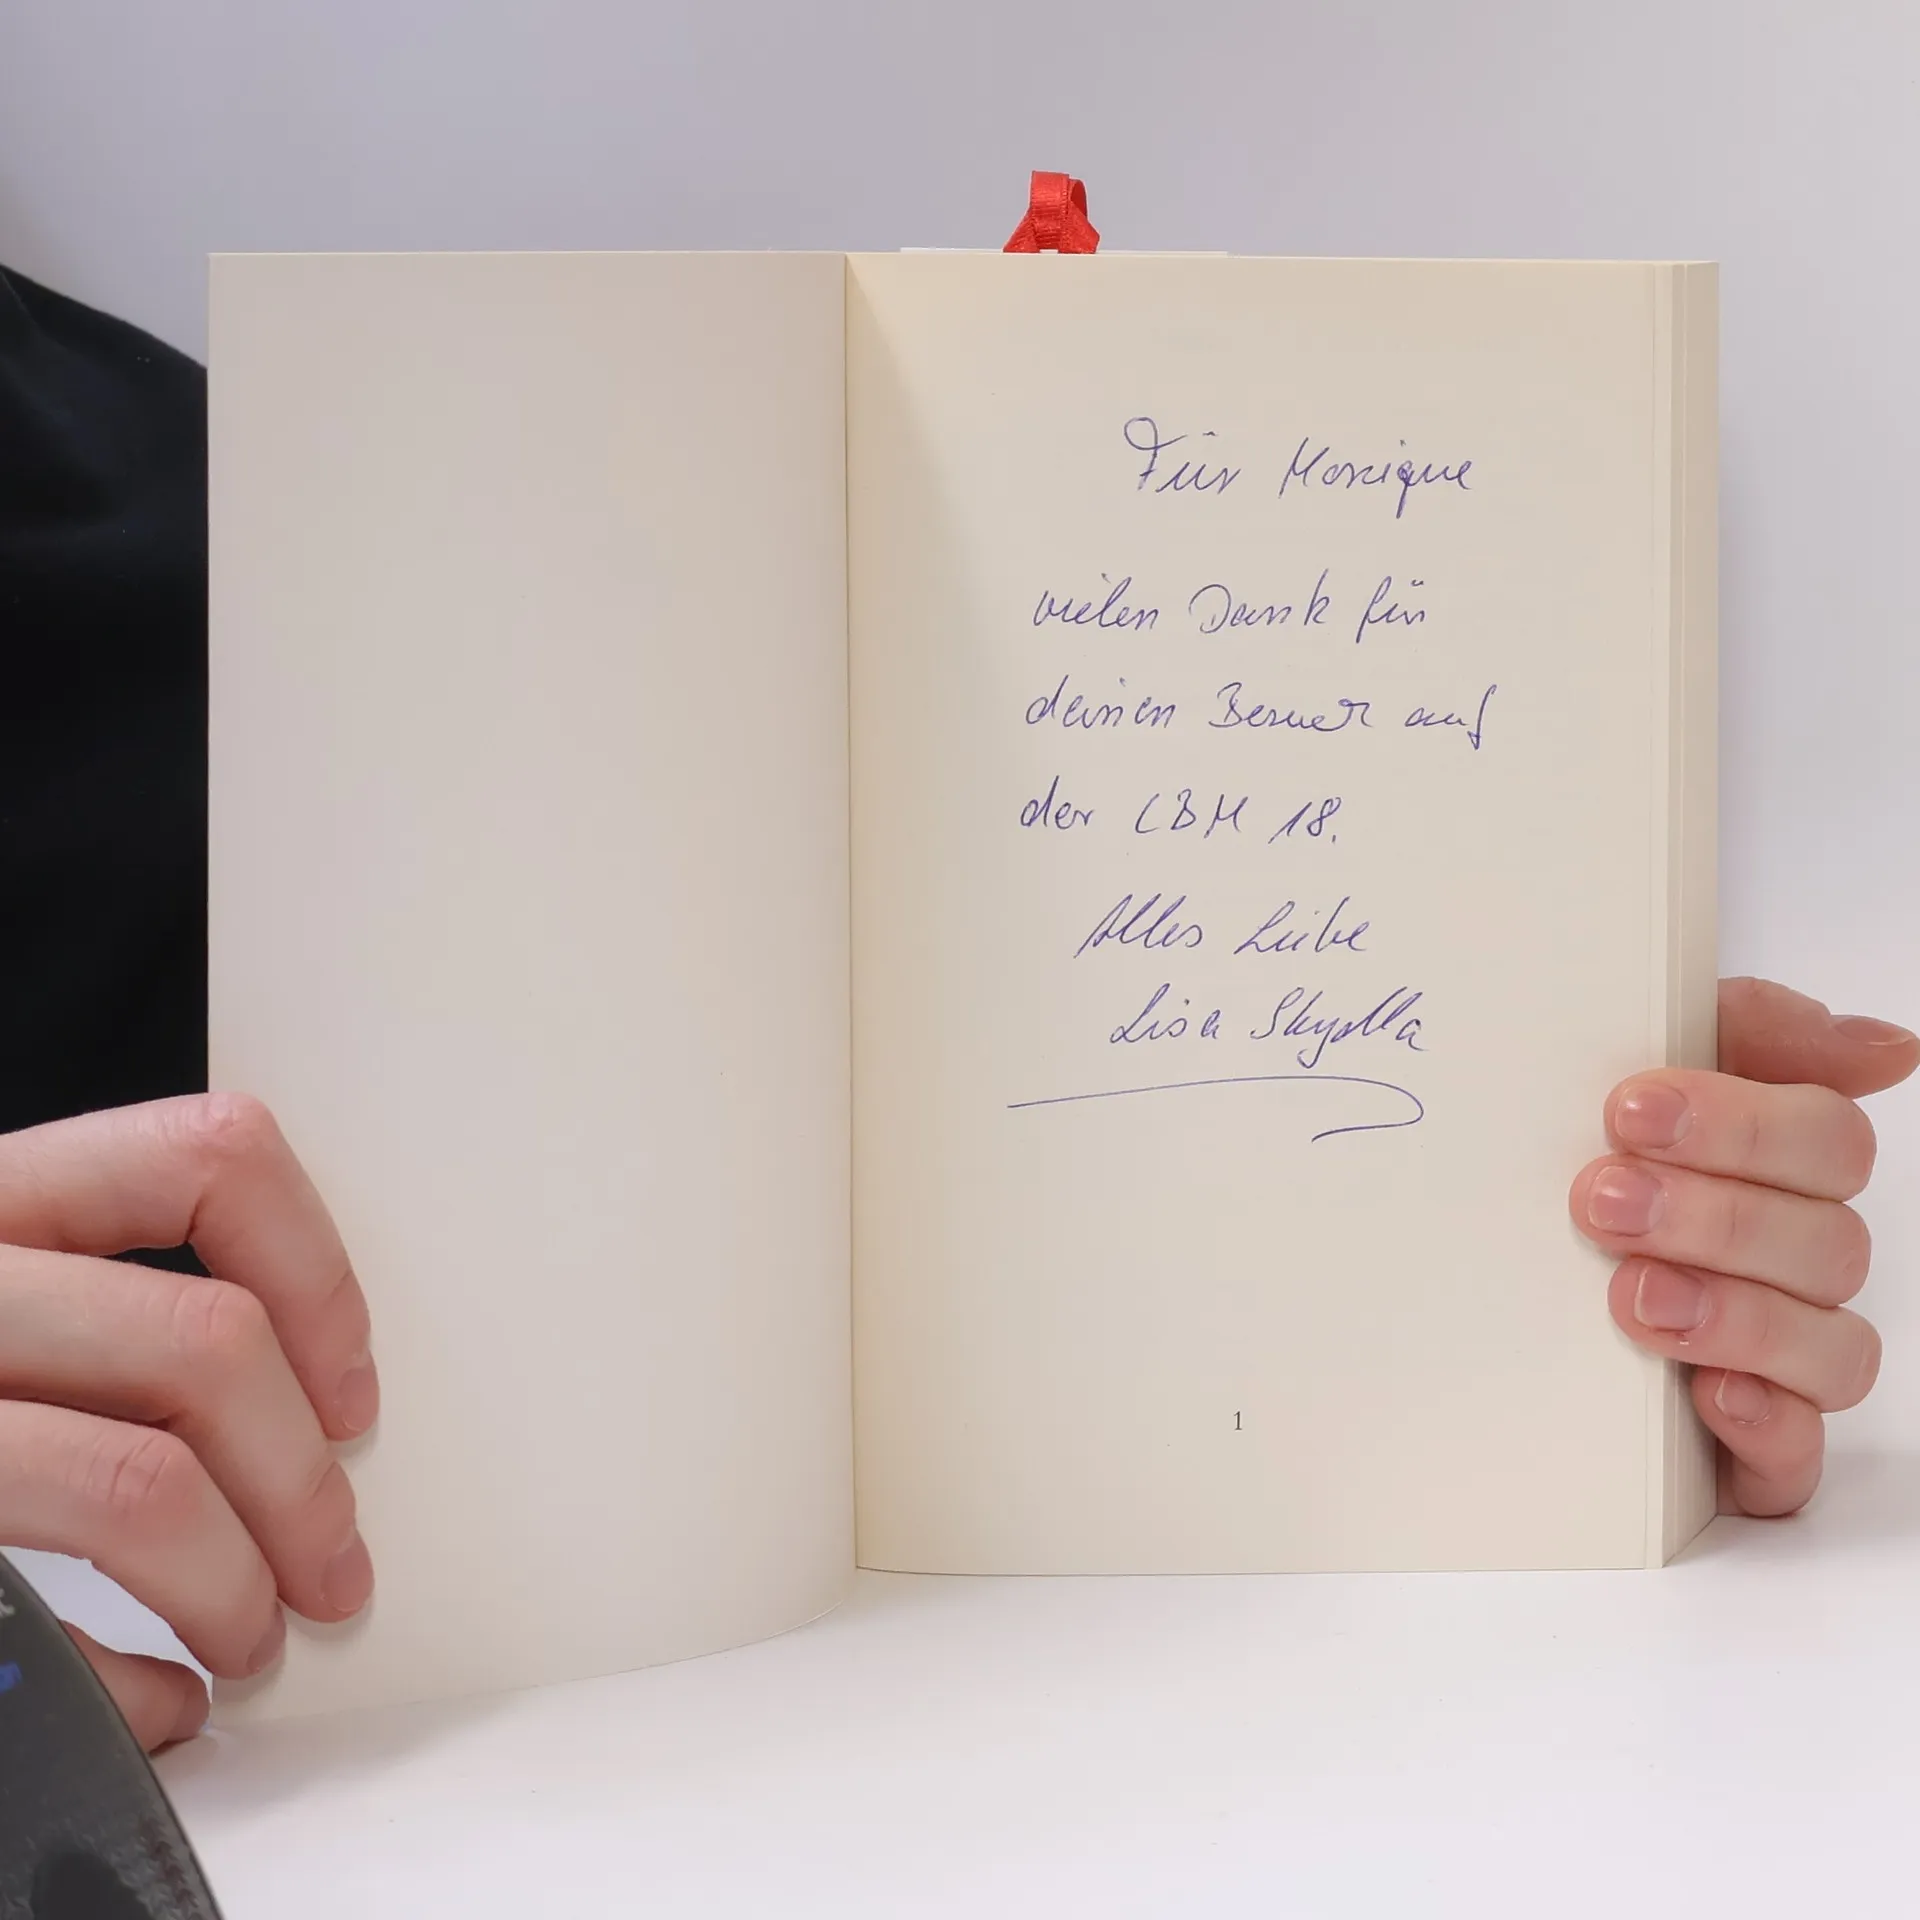 Für Monique
vielen Dank für
deinen Besuch auf
der LBM 18.
Alles Liebe
Lisa Skydla
1